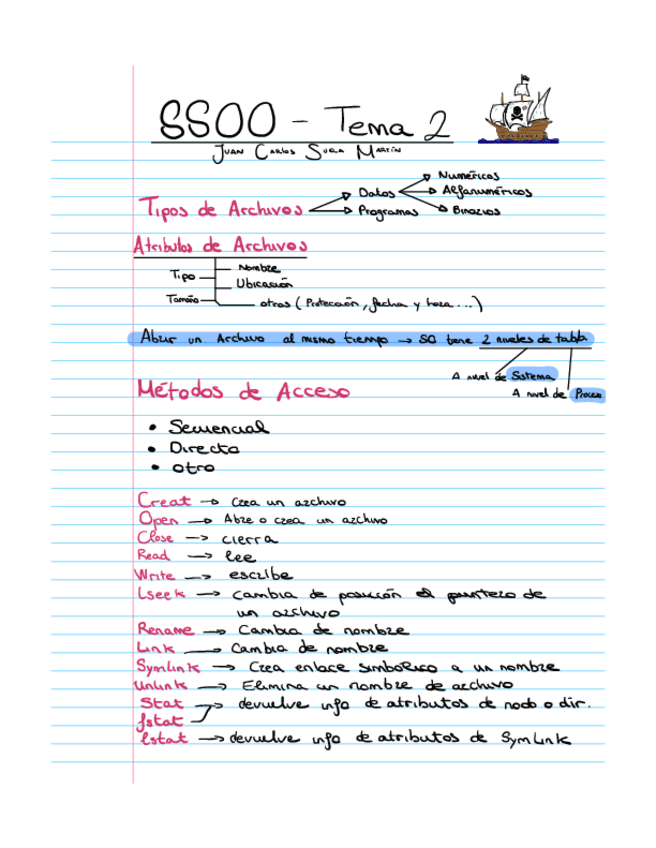 SSOO - Tema 2
Juan Carlos Suela Martín
Tipos de Archivos → Datos → Numéricos
→ Alfanuméricos
→ Binarios
→ Programas
Atributos de Archivos
Tipo
Nombre
Ubicación
Tamaño
otros (Protección, fecha y hora ...)
Abrir un Archivo al mismo tiempo → SO tiene 2 niveles de tabla
A nivel de Sistema
A nivel de Proceso
Métodos de Acceso
• Secuencial
• Directo
• otro
Creat → Crea un archivo
Open → Abre o crea un archivo
Close → cierra
Read → lee
Write → escribe
Lseek → cambia de posición el puntero de
un archivo
Rename → Cambia de nombre
Link → Cambia de nombre
Symlink → Crea enlace simbolico a un nombre
Unlink → Elimina un nombre de archivo
Stat → devuelve info de atributos de nodo o dir.
fstat
lstat → devuelve info de atributos de SymLink